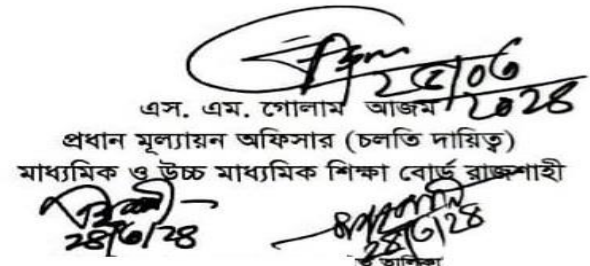 ২৫/০৬
২০২৪
এস. এম. গোলাম আজম
প্রধান মূল্যায়ন অফিসার (চলতি দায়িত্ব)
মাধ্যমিক ও উচ্চ মাধ্যমিক শিক্ষা বোর্ড রাজশাহী
২৪/৬/২৪ ২৪/৬/২৪